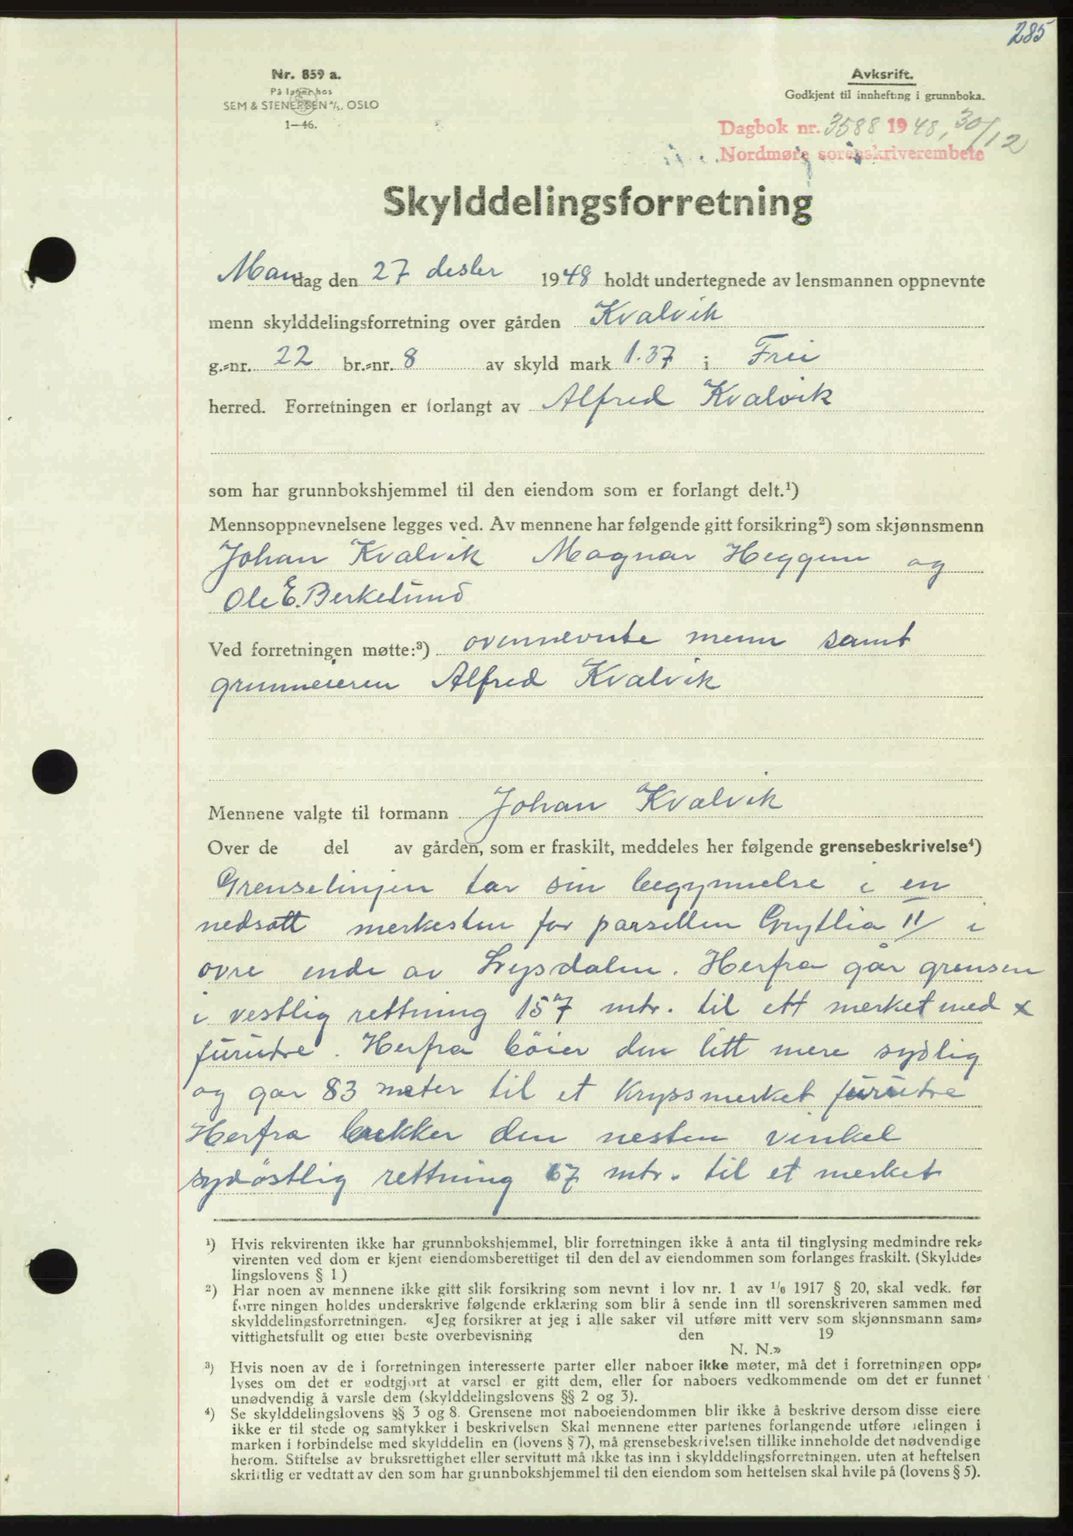 285
Nr. 859 a.
På lager hos
SEM & STENERSEN A/S. OSLO
1—46.
Avksrift.
Godkjent til innhefting i grunnboka.
Dagbok nr. 3588 1948, 30/12
Nordmøre sorenskriverembete
Skylddelingsforretning
Mandag den 27 desber 1948 holdt undertegnede av lensmannen oppnevnte
menn skylddelingsforretning over gården Kvalvik
g.-nr. 22 br.-nr. 8 av skyld mark 1.37 i Frei
herred. Forretningen er forlangt av Alfred Kvalvik
som har grunnbokshjemmel til den eiendom som er forlangt delt.¹)
Mennsoppnevnelsene legges ved. Av mennene har følgende gitt forsikring²) som skjønnsmenn
Johan Kvalvik Magnar Heggem og
Ole E. Berkelund
Ved forretningen møtte:³) ovennevnte menn samt
grunneieren Alfred Kvalvik
Mennene valgte til formann Johan Kvalvik
Over de del av gården, som er fraskilt, meddeles her følgende grensebeskrivelse⁴)
Grenselinjen tar sin begynnelse i en
nedsatt merkesten for parsellen Gryllia II/ i
øvre ende av Lysdalen. Herfra går grensen
i vestlig rettning 157 mtr. til ett merket med x
furutre. Herfra bøier den litt mere sydlig
og går 83 meter til et kryssmerket furutre
Herfra brekker den nesten vinkel
sydøstlig rettning 67 mtr. til et merket
¹) Hvis rekvirenten ikke har grunnbokshjemmel, blir forretningen ikke å anta til tinglysing medmindre rek-
virenten ved dom er kjent eiendomsberettiget til den del av eiendommen som forlanges fraskilt. (Skyldde-
lingslovens § 1)
²) Har noen av mennene ikke gitt slik forsikring som nevnt i lov nr. 1 av 1/6 1917 § 20, skal vedk. før
forretningen holdes underskrive følgende erklæring som blir å sende inn til sorenskriveren sammen med
skylddelingsforretningen. «Jeg forsikrer at jeg i alle saker vil utføre mitt verv som skjønnsmann sam-
vittighetsfullt og etter beste overbevisning den 19
N. N.»
³) Hvis noen av de i forretningen interesserte parter eller naboer ikke møter, må det i forretningen opp-
lyses om det er godtgjort at varsel er gitt dem, eller for naboers vedkommende om det er funnet
unødvendig å varsle dem (skylddelingslovens §§ 2 og 3).
⁴) Se skylddelingslovens §§ 3 og 8. Grensene mot naboeiendommen blir ikke å beskrive dersom disse eiere
ikke er til stede og samtykker i beskrivelsen Skal mennene etter partenes forlangende utføre delingen i
marken i forbindelse med skylddelingen (lovens § 7), må grensebeskrivelsen tillike inneholde det nødvendige
herom. Stiftelse av bruksrettighet eller servitutt må ikke tas inn i skylddelingsforretningen. uten at heftelsen
skriftlig er vedtatt av den som har grunnbokshjemmel til den eiendom som heftelsen skal hvile på (lovens § 5).